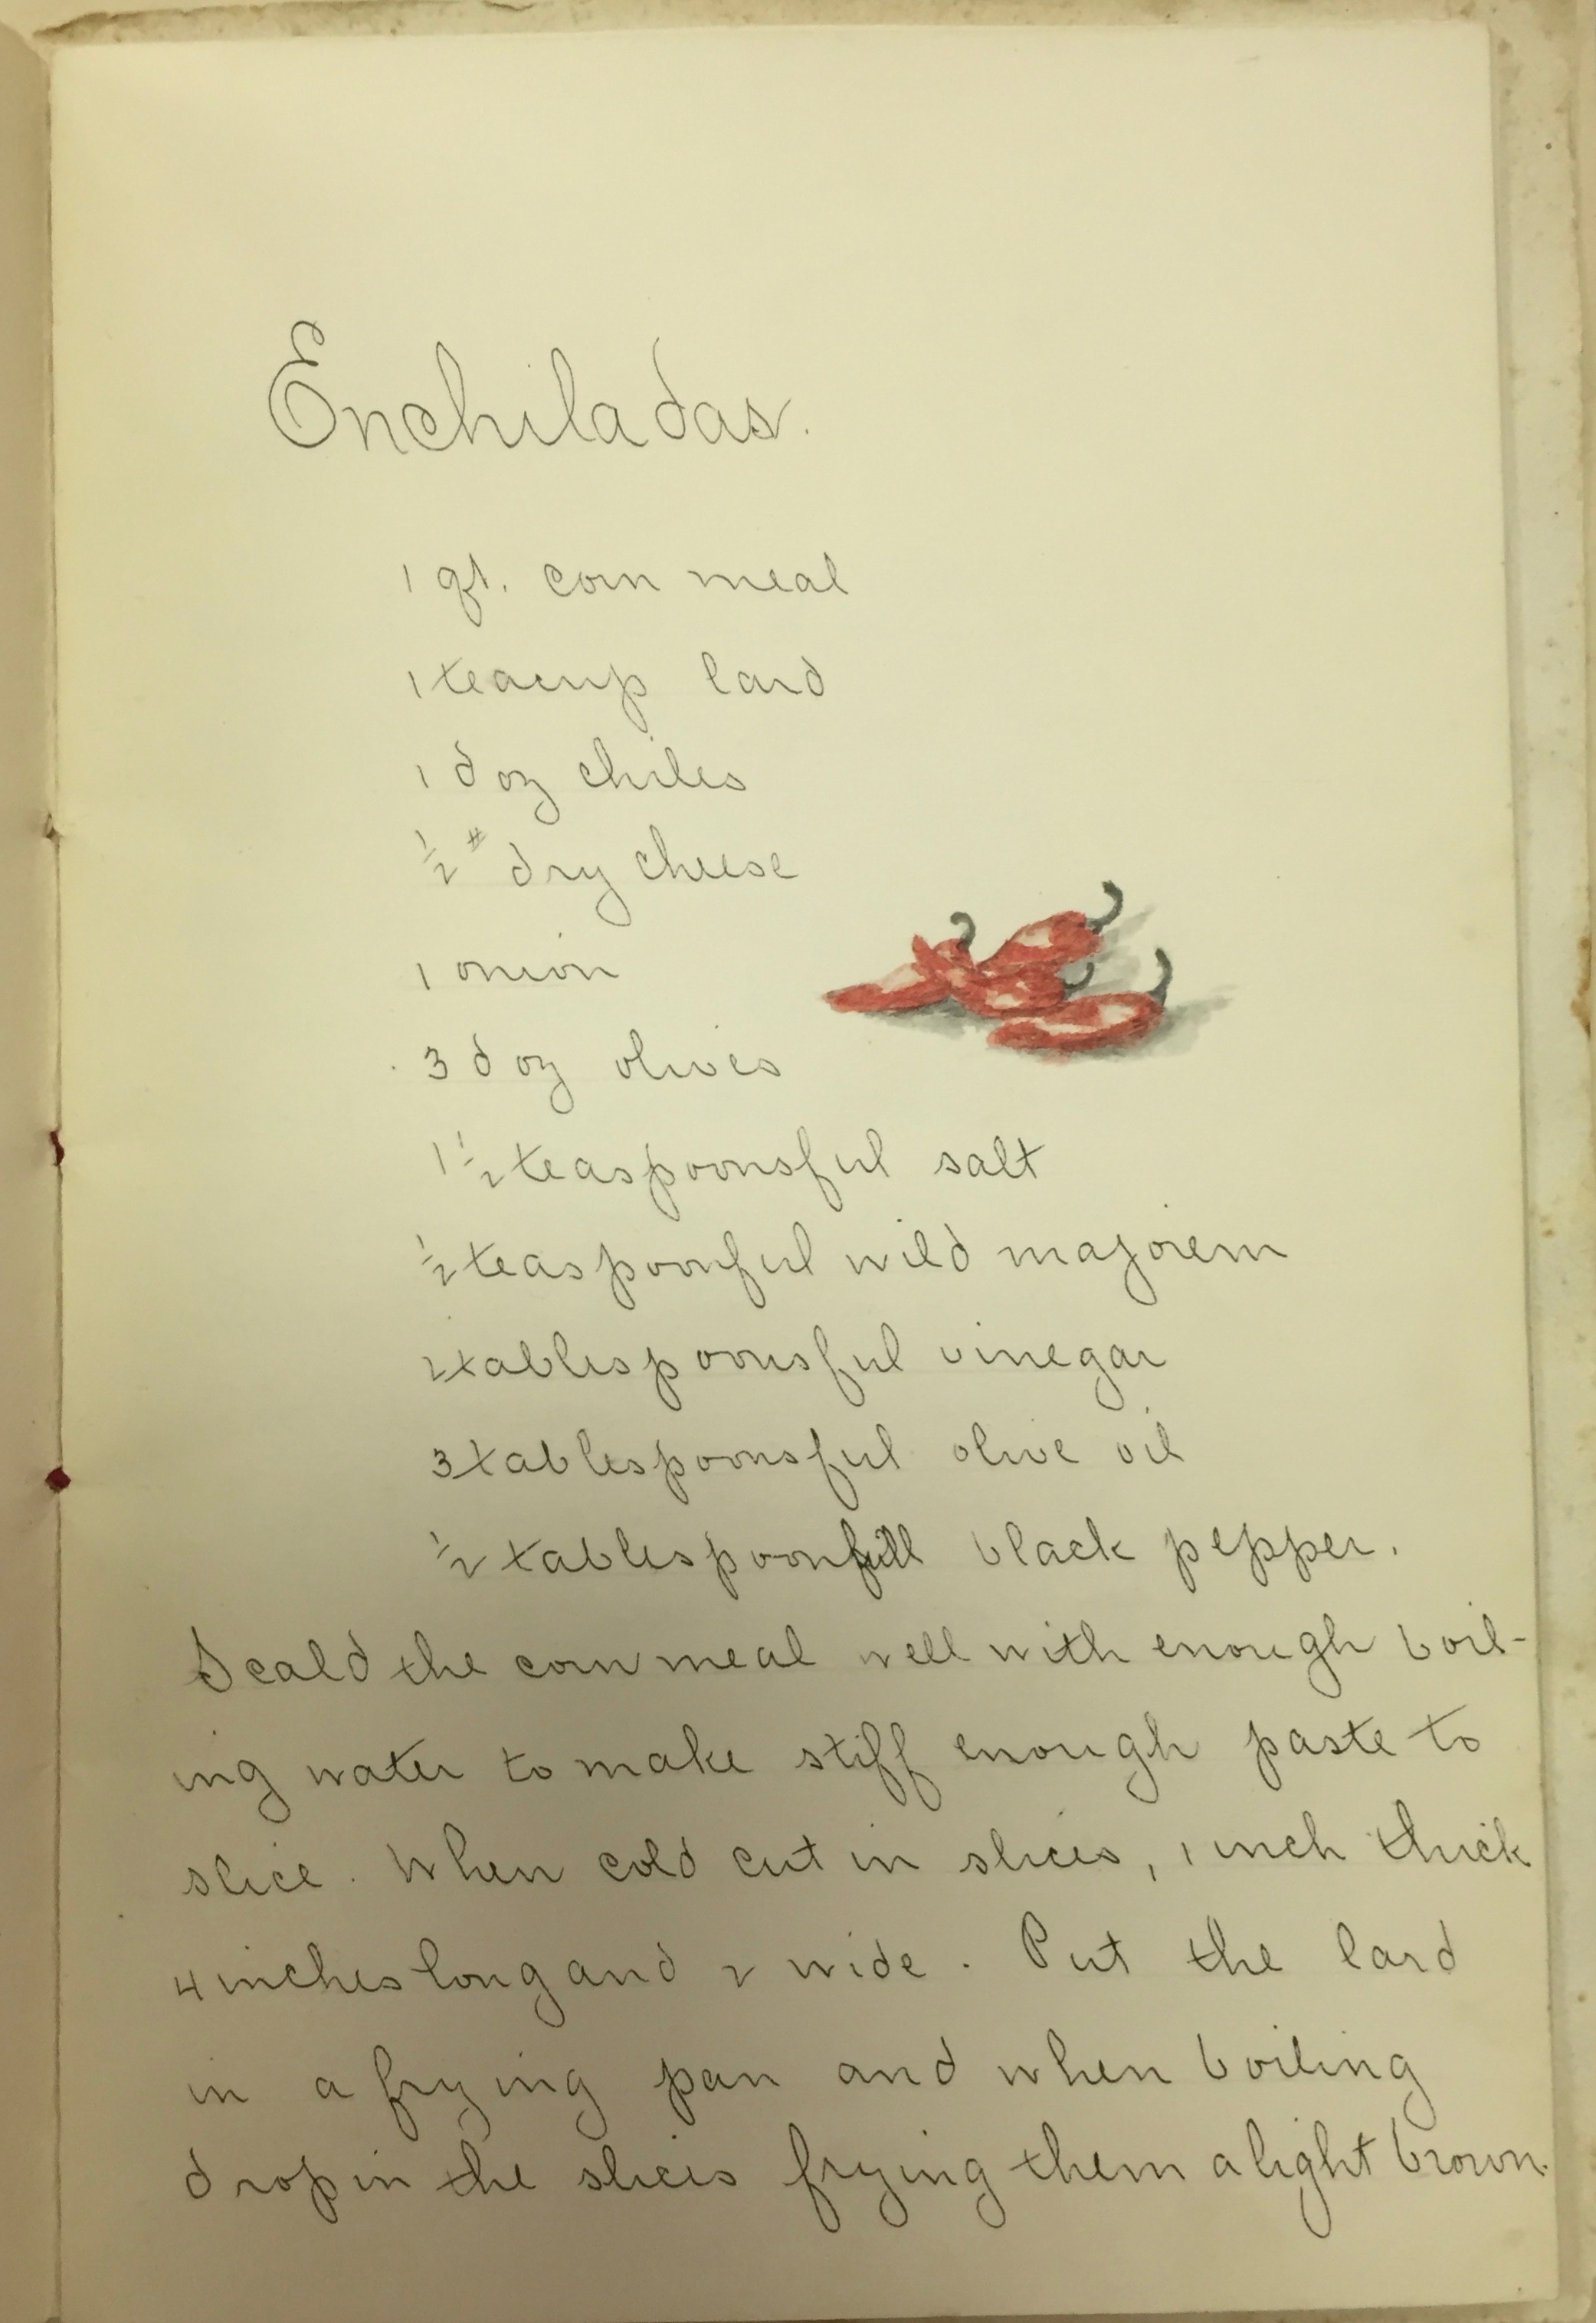 Enchiladas.
1 qt. corn meal
1 teacup lard
1 doz chiles
½ # dry cheese
1 onion
3 doz olives
1½ teaspoonsful salt
½ teaspoonful wild majorem
2 tablespoonsful vinegar
3 tablespoonsful olive oil
½ tablespoonfull black pepper.
Scald the corn meal well with enough boil-
ing water to make stiff enough paste to
slice. When cold cut in slices, 1 inch thick
4 inches long and 2 wide. Put the lard
in a frying pan and when boiling
drop in the slices frying them a light brown.